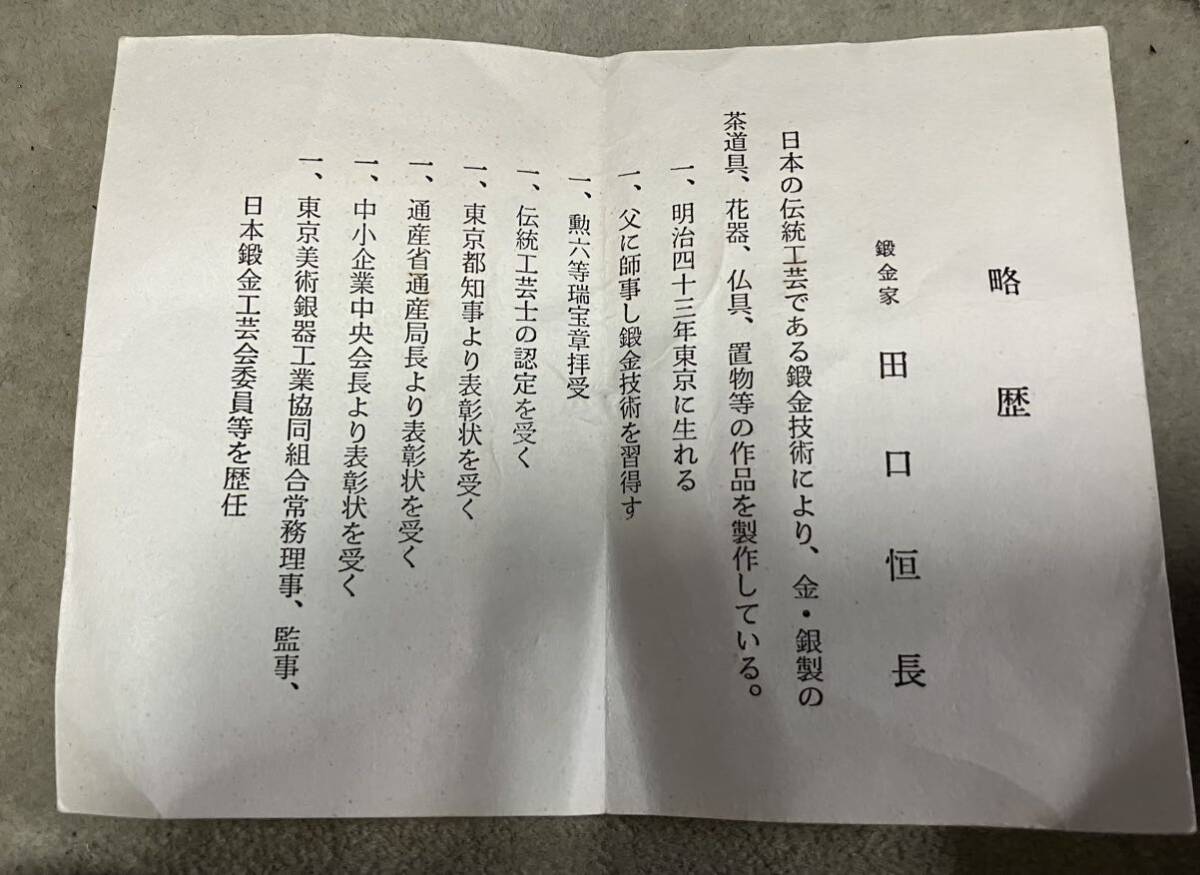 略歴
鍛金家 田口恒長
日本の伝統工芸である鍛金技術により、金・銀製の
茶道具、花器、仏具、置物等の作品を製作している。
一、明治四十三年東京に生れる
一、父に師事し鍛金技術を習得す
一、勲六等瑞宝章拝受
一、伝統工芸士の認定を受く
一、東京都知事より表彰状を受く
一、通産省通産局長より表彰状を受く
一、中小企業中央会長より表彰状を受く
一、東京美術銀器工業協同組合常務理事、監事、
日本鍛金工芸会委員等を歴任